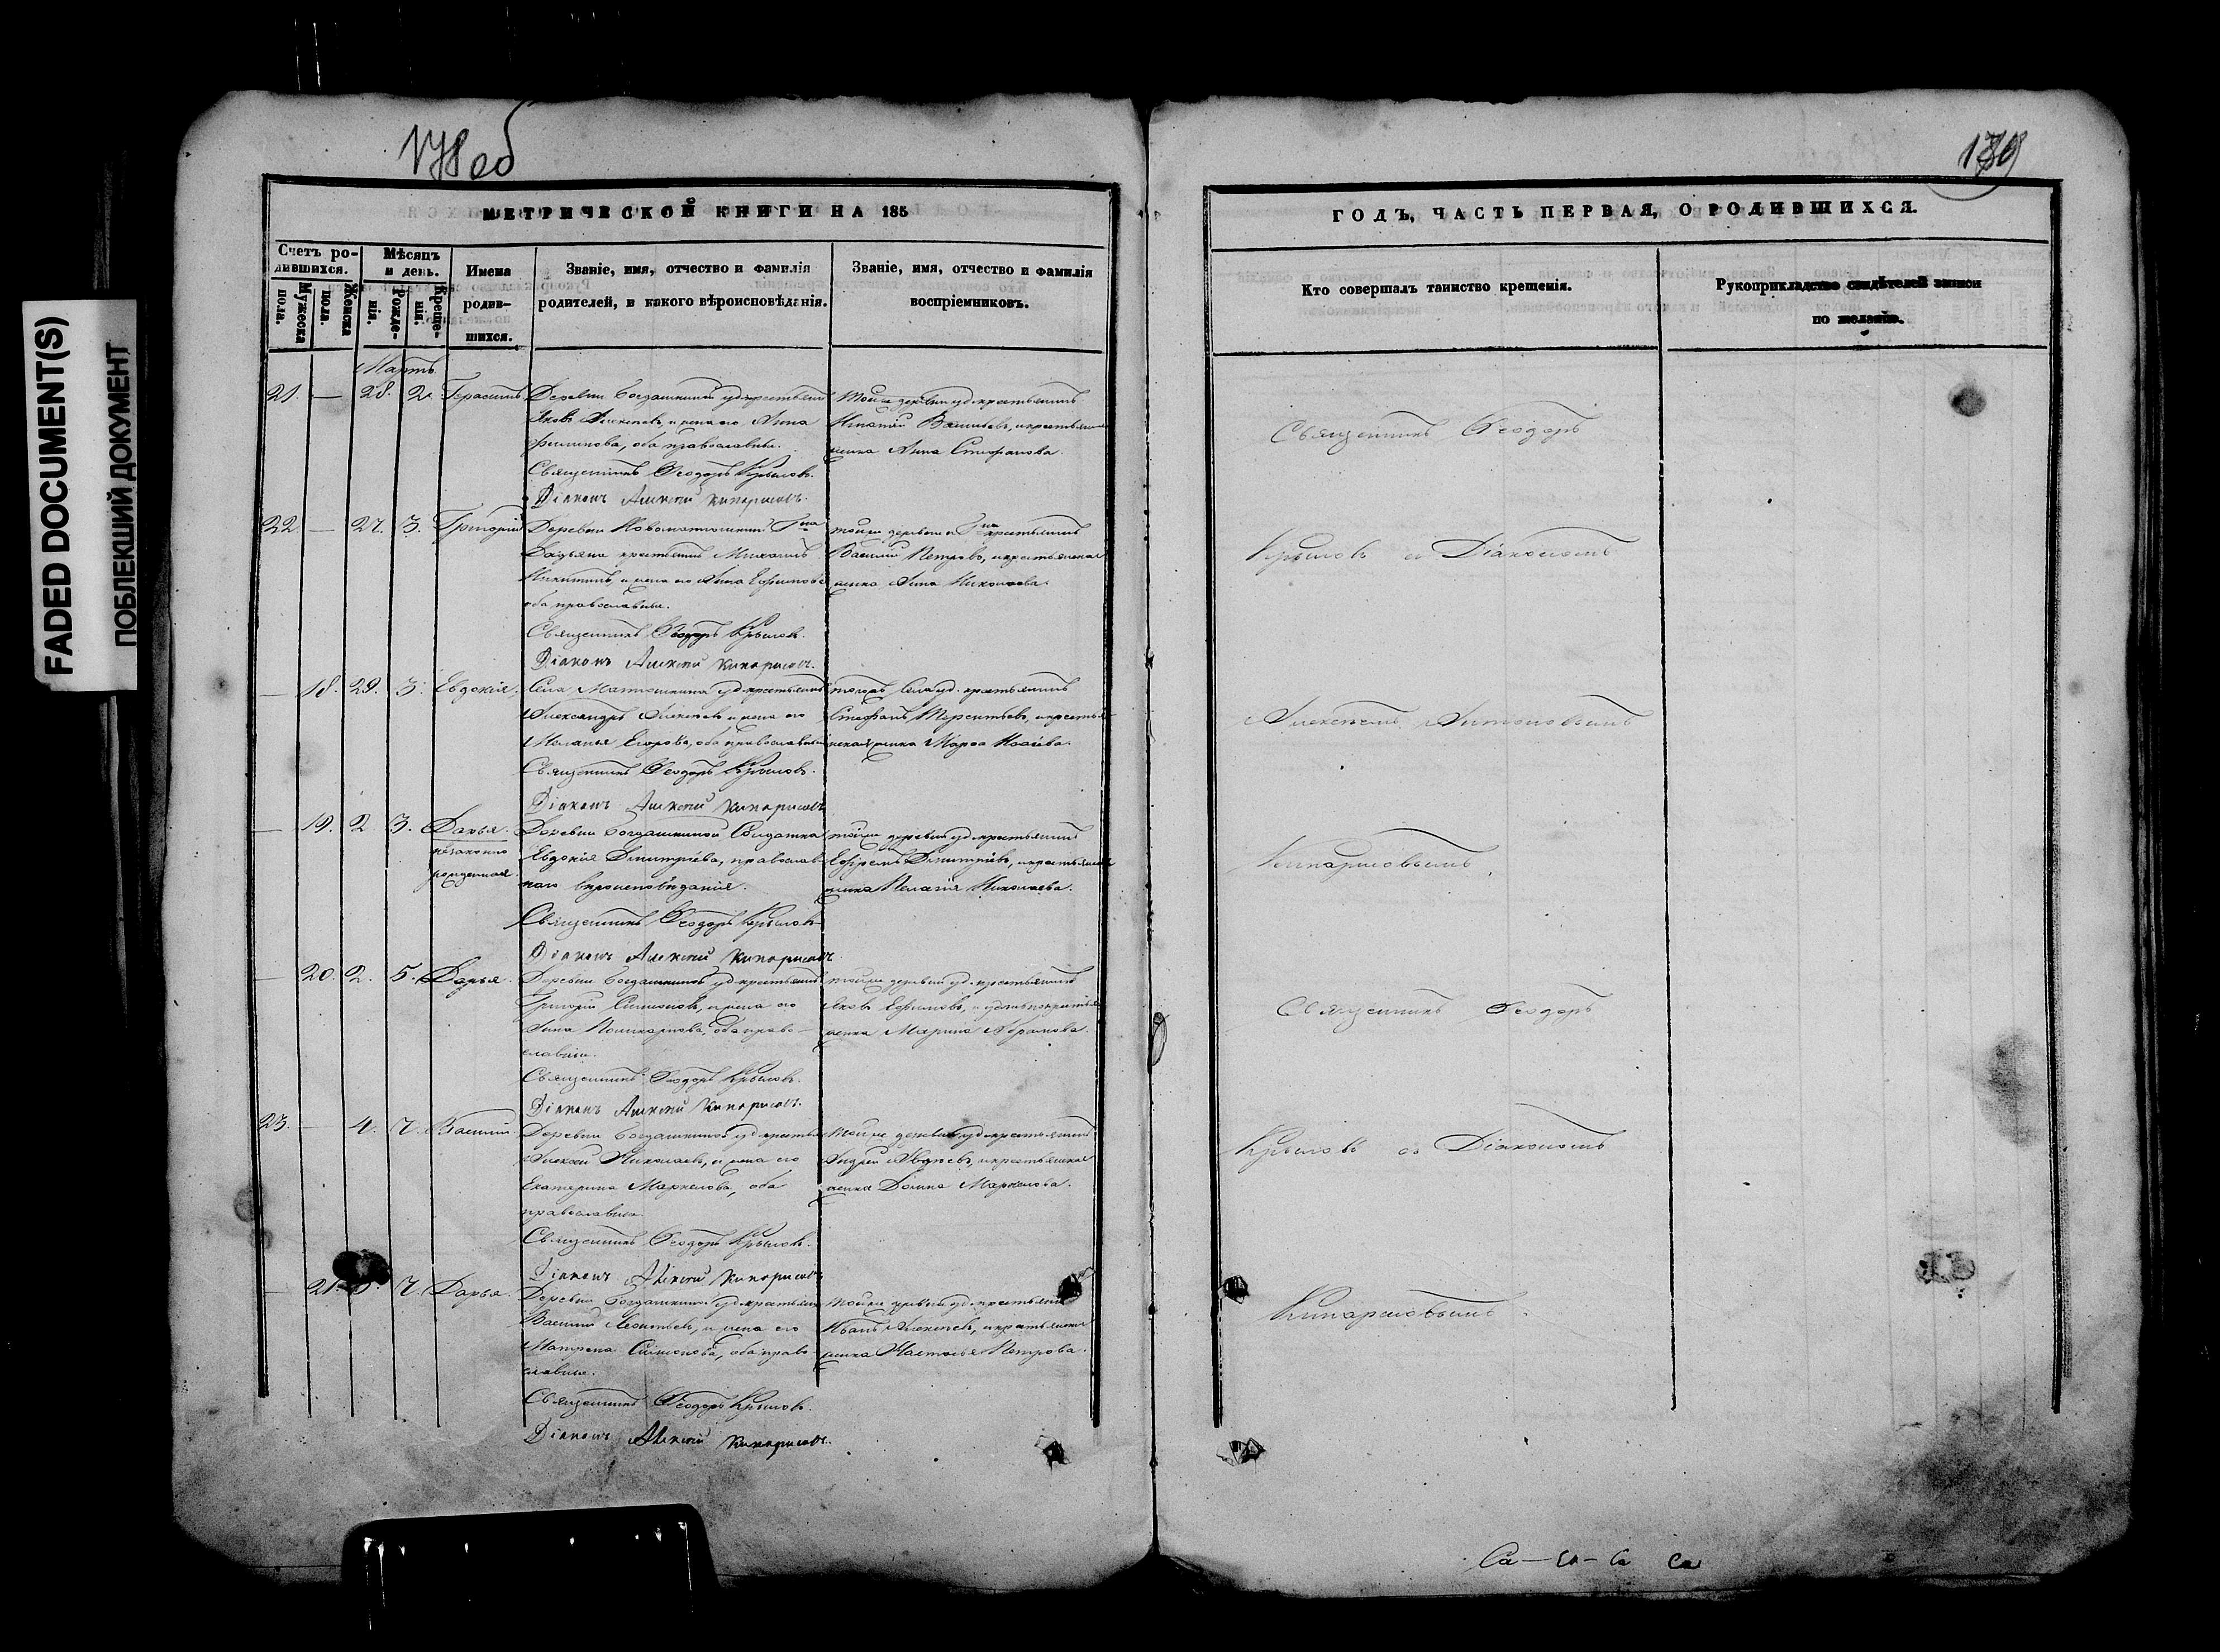 FADED DOCUMENT(S)
ПОБЛЕКШИЙ ДОКУМЕНТ
178 об
МЕТРИЧЕСКОЙ КНИГИ НА 185
Счетъ ро-
дившихся.
Мужеска
пола.
Женска
пола.
Мѣсяцъ
и день.
Рожде-
нія.
Креще-
нія.
Имена
родив-
шихся.
Званіе, имя, отчество и фамилія
родителей, и какого вѣроисповѣданія.
Званіе, имя, отчество и фамилія
воспріемниковъ.
Мартъ
21. — 28. 2. Герасимъ
Деревни Богдашкиной уд. крестьянинъ
Яковъ Алексѣевъ, и жена его Анна
Филипова, оба православные.
Священникъ Ѳеодоръ Крыловъ.
Діаконъ Алексѣй Кипарисовъ.
Тойже деревни уд. крестьянинъ
Игнатій Васильевъ, и крестьян
жинка Анна Стефанова.
22 — 27. 3. Григорій
Деревни Г на
крестьянинъ Михаилъ
Никитинъ, и жена его Анна Ефимова
оба православные.
Священникъ Ѳеодоръ Крыловъ.
Діаконъ Алексѣй Кипарисовъ.
тойже деревни Г на крестьянинъ
Василій Петровъ, и крестьянская
жинка Анна Николаева.
— 18. 29. 3. Евдокія.
Села Матюшкина уд. крестьянинъ
Александръ Алексѣевъ и жена его
Меланья Егорова, оба православные
Священникъ Ѳеодоръ Крыловъ.
Діаконъ Алексѣй Кипарисовъ
тогожъ села уд. крестьянинъ
Стефанъ Терентьевъ, и крестья
нская жинка Марѳа
— 19. 2 3. Дарья.
незаконно
рожденная.
Деревни Богдашкиной Солдатка
Евдокія Дмитріева, православ
наго вѣроисповѣданія.
Священникъ Ѳеодоръ Крыловъ
Діаконъ Алексѣй Кипарисовъ.
тойже деревни уд. крестьянинъ
Ефремъ Дмитріевъ, и крестьянск
жинка Пелагія Николаева.
— 20. 2. 5. Дарья.
Деревни Богдашкиной уд. крестьянинъ
Григорій Симоновъ, и жена его
Анна Поликарпова, оба право-
славные.
Священникъ Ѳеодоръ Крыловъ.
Діаконъ Алексѣй Кипарисовъ.
тойже деревни уд. крестьянинъ
Яковъ Ефимовъ, и
жинка Марина Абрамова.
23. — 4. 7. Василій.
Деревни Богдашкиной уд. крестья
Алексѣй Николаевъ, и жена его
Екатерина Маркелова, оба
православные
Священникъ Ѳеодоръ Крыловъ.
Діаконъ Алексѣй Кипарисовъ
тойже деревни уд. крестьянинъ
Андрей Авдѣевъ, и крестьянская
жинка Домна Маркелова.
— 21. 7. Дарья.
Деревни Богдашкиной уд. крестьян
Василій Леонтьевъ, и жена его
Матрена Симонова, оба право-
славные.
Священникъ Ѳеодоръ Крыловъ.
Діаконъ Алексѣй Кипарисовъ.
тойже деревни уд. крестьянинъ
Иванъ Алексѣевъ, и крестьянска
жинка Настасья Петрова.
ГОДЪ, ЧАСТЬ ПЕРВАЯ, О РОДИВШИХСЯ.
Кто совершалъ таинство крещенія.
Рукоприкладство свидѣтелей записи
по желанію.
Священникъ Ѳеодоръ
Крыловъ съ Діакономъ
Алексѣемъ
Кипарисовымъ.
Священникъ Ѳеодоръ
Крыловъ съ Діакономъ
Кипарисовымъ.